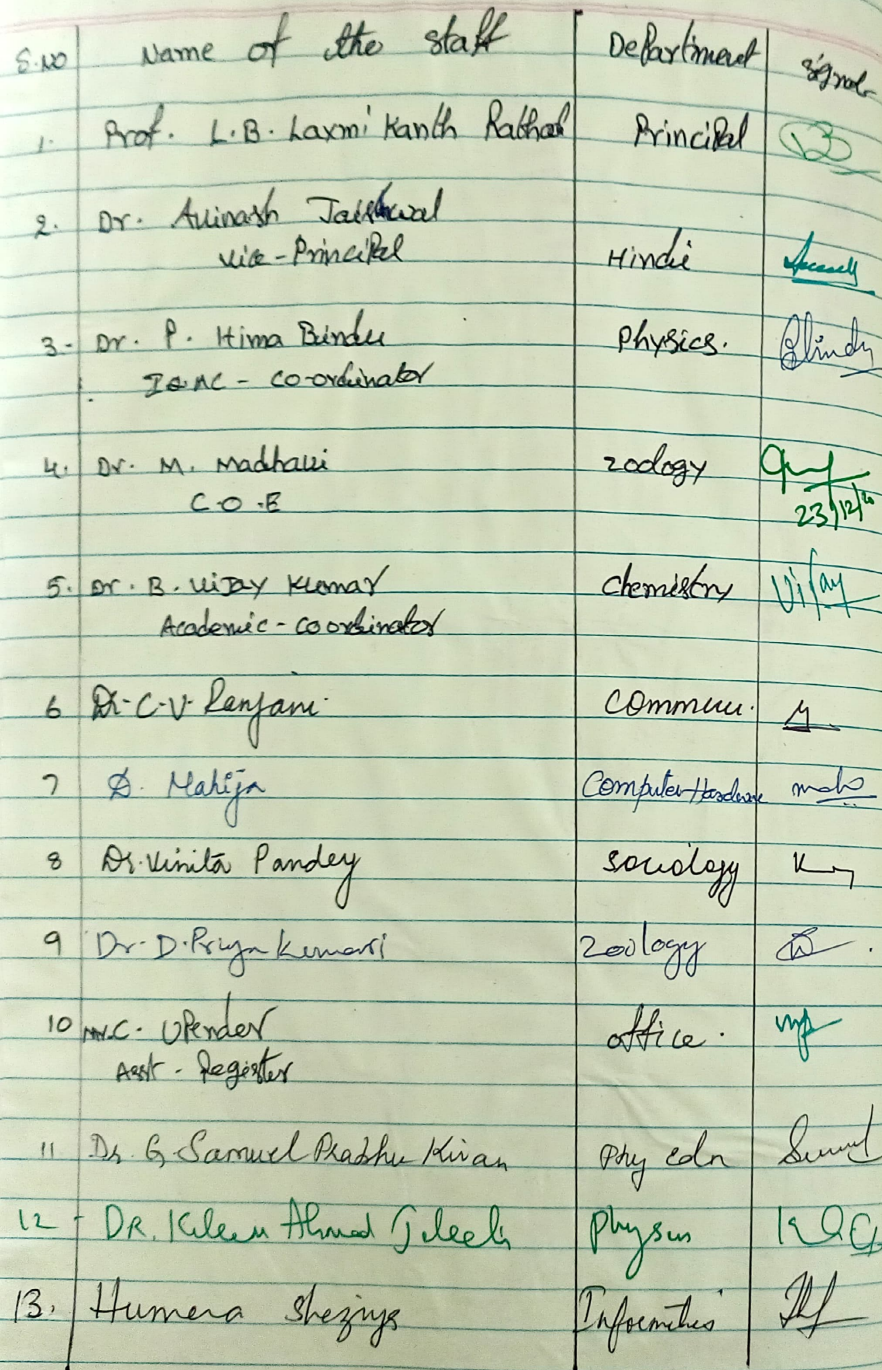 S.NO Name of the staff Department Signat
1. Prof. L.B. Laxmi Kanth Rathod Principal
2. Dr. Avinash Jaiswal
Vice-Principal Hindi
3- Dr. P. Hima Bindu Physics. Bindu
IQAC - Co-ordinator
4. Dr. M. Madhavi Zoology
C.O.E 23/12/20
5. Dr. B. Vijay Kumar Chemistry Vijay
Academic-coordinator
6 Dr-C-V-Ranjani. Commun.
7 D. Mahija Computer Hardware
8 Dr. Vinita Pandey Sociology
9 Dr-D.Priya Kumari Zoology
10 Mr.C. Upender office.
Asst - Register
11 Dr. G. Samuel Prabhu Kiran Phy edn
12 - DR. Kaleem Ahmed Jaleeli Physics
13. Humera Sheziys Informatics